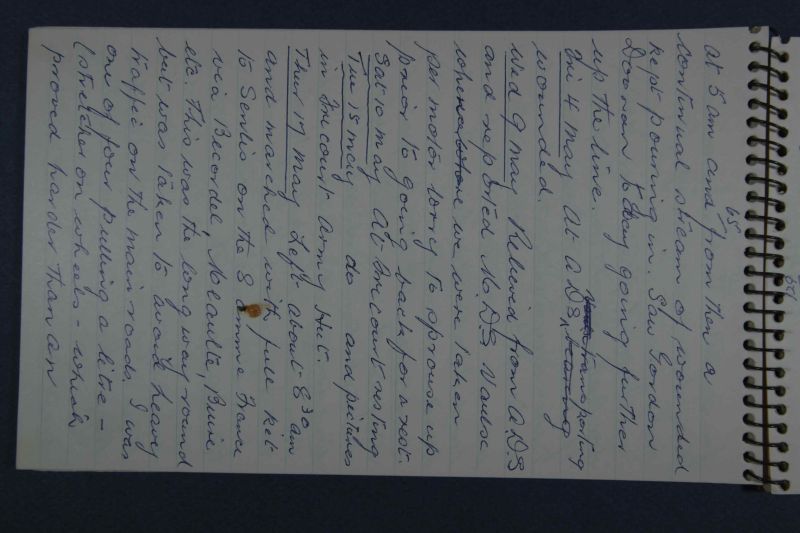 65
at 5 am and from then a
continual stream of wounded
kept pouring in. Saw Gordon
Doonan to day going further
up the line.
Fri 4 May At A.D.S. transporting
wounded.
Wed 9 May Relieved from A.D.S
and reported M.D.S Vaulx
we were taken
per motor lorry to sprouse up
prior to going back for a rest.
Sat 10 May At Bricourt resting
Tue 15 May do and pictures
in Bricourt Army Hut.
Thur 17 May Left about 8 30 am
and marched with full kit
to Senlis on the Somme France
via Becordel, Meaulte, Buire
etc. This was the long way round
but was taken to avoid heavy
traffic on the main roads. I was
one of four pulling a litre -
(stretcher on wheels - which
proved harder than an